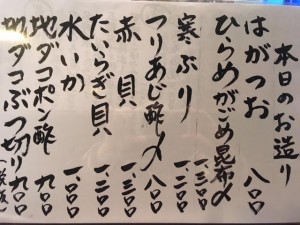 本日のお造り
はがつお 八〇〇
ひらめがごめ昆布〆 一、三〇〇
寒ぶり 一、二〇〇
つりあじ酢〆 八〇〇
赤貝 一、三〇〇
たいらぎ貝 一、二〇〇
水いか 一、〇〇〇
地ダコポン酢 九〇〇
地ダコぶつ切り 九〇〇